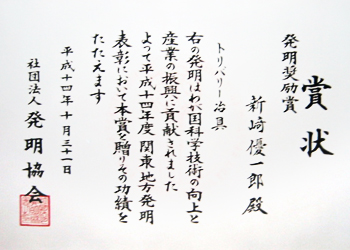 賞状
発明奨励賞
新崎優一郎殿
トリバリー治具
右の発明はわが国科学技術の向上と
産業の振興に貢献されました
よって平成十四年度関東地方発明
表彰において本賞を贈りその功績を
たたえます
平成十四年十月三十一日
社団法人 発明協会